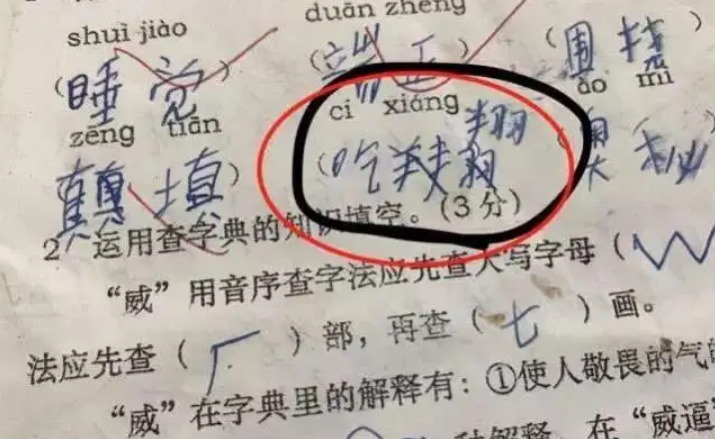 shuì jiào duān zhèng
(睡觉) (端正) (围接)
zēng tiān cí xiáng ào mì
填) (吃翔翔 (奥秘)
2、运用查字典的知识填空。(3分)
“威”用音序查字法应先查大写字母(
法应先查(厂)部，再查(七)画。
“威”在字典里的解释有：①使人敬畏的气
种解释，在“威逼